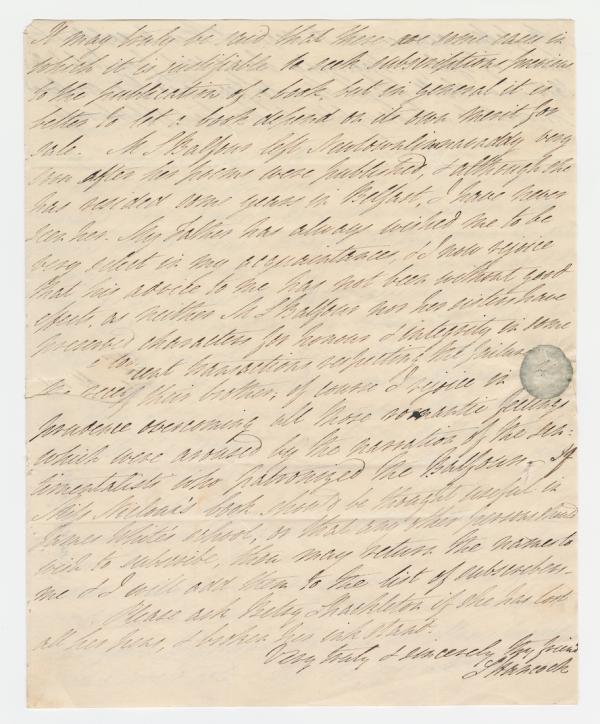 It may truly be said that there are some cases in
which it is justifiable to seek subscriptions previous
to the publication of a book, but in general it is
better to let a book depend on its own merit for
sale. M S Balfour left Newtownlimavaddy very
soon after her poems were published, & although she
has resided some years in Belfast, I have never
seen her. My Father has always wished me to be
very select in my acquaintances, & I now rejoice
that his advice to me has not been without good
effect, as neither M S Balfour nor her sisters have
preserved characters for honour & integrity in some
transactions respecting the failure
of their brother, of course I rejoice in
prudence overcoming all those romantic feelings
which were aroused by the narration of the sen:
timentalists who patronized the Balfours. If
Miss book should be thought useful in
James White's school, or that any other persons should
wish to subscribe, thou may return the names to
me & I will add them to the list of subscribers.
Please ask Betsy Shackleton if she has lost
all her pens, & broken her ink stand.
Very truly & sincerely thy friend
Hancock